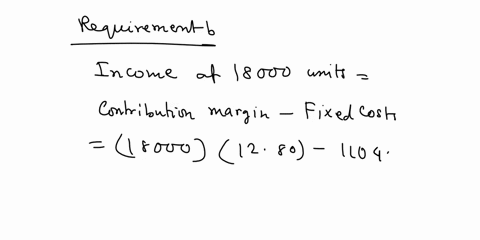 Requirement b
Income at 18000 units =
Contribution margin - Fixed Costs
= (18000) (12.80) - 1104.